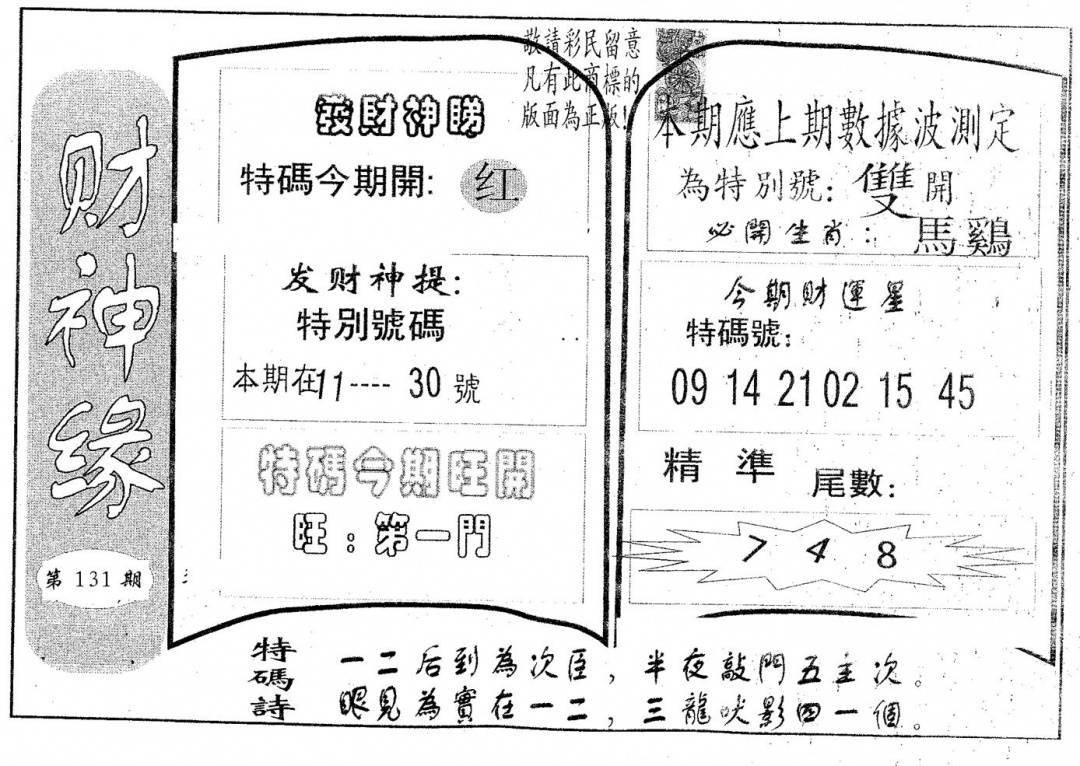 财神缘
第 131 期
敬請彩民留意
凡有此商標的
版面為正版!
發財神睇
特碼今期開: 红
发财神提:
特別號碼
本期在11---- 30 號
特碼今期旺開
旺：第一門
本期應上期數據波測定
為特別號: 雙 開
必開生肖: 馬鷄
今期財運星
特碼號:
09 14 21 02 15 45
精 準 尾數:
7 4 8
特碼詩
一二后到為次臣，半夜敲門五主次。
眼見為實在一二，三龍吠影四一個。